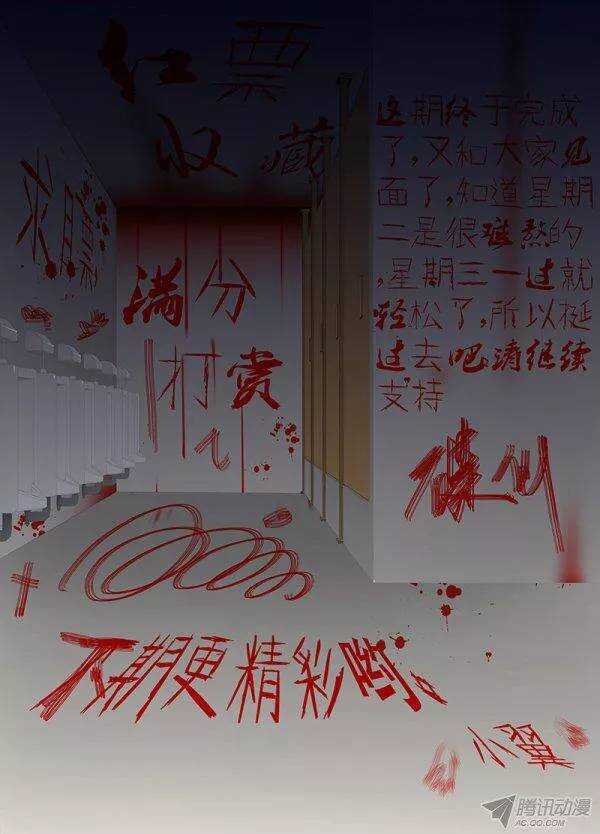 红票
收藏
求月票
满分
打赏
这期终于完成
了，又和大家见
面了，知道星期
二是很难熬的
，星期三一过就
轻松了，所以挺
过去吧，请继续
支持
下期更精彩哟。
小翼
腾讯动漫
AC.QQ.COM